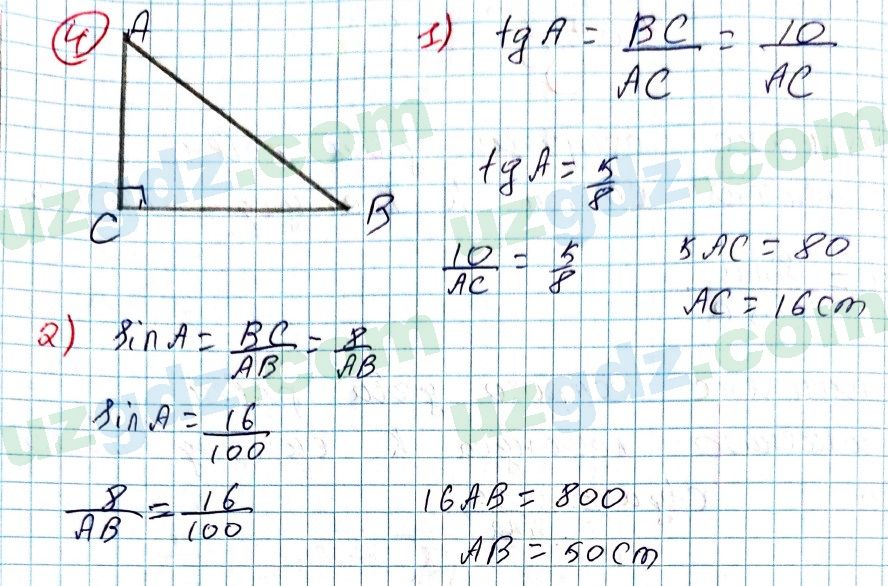 4
A
C
B
1) tgA = BC/AC = 10/AC
tgA = 5/8
10/AC = 5/8
5AC = 80
AC = 16cm
2) sinA = BC/AB = 8/AB
sinA = 16/100
8/AB = 16/100
16AB = 800
AB = 50cm
uzgdz.com
uzgdz.com
uzgdz.com
uzgdz.com